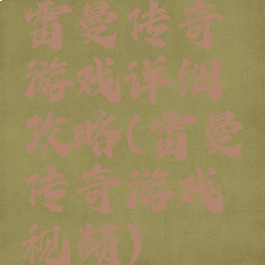 雷曼传奇
游戏详细
攻略(雷曼
传奇游戏
视频)